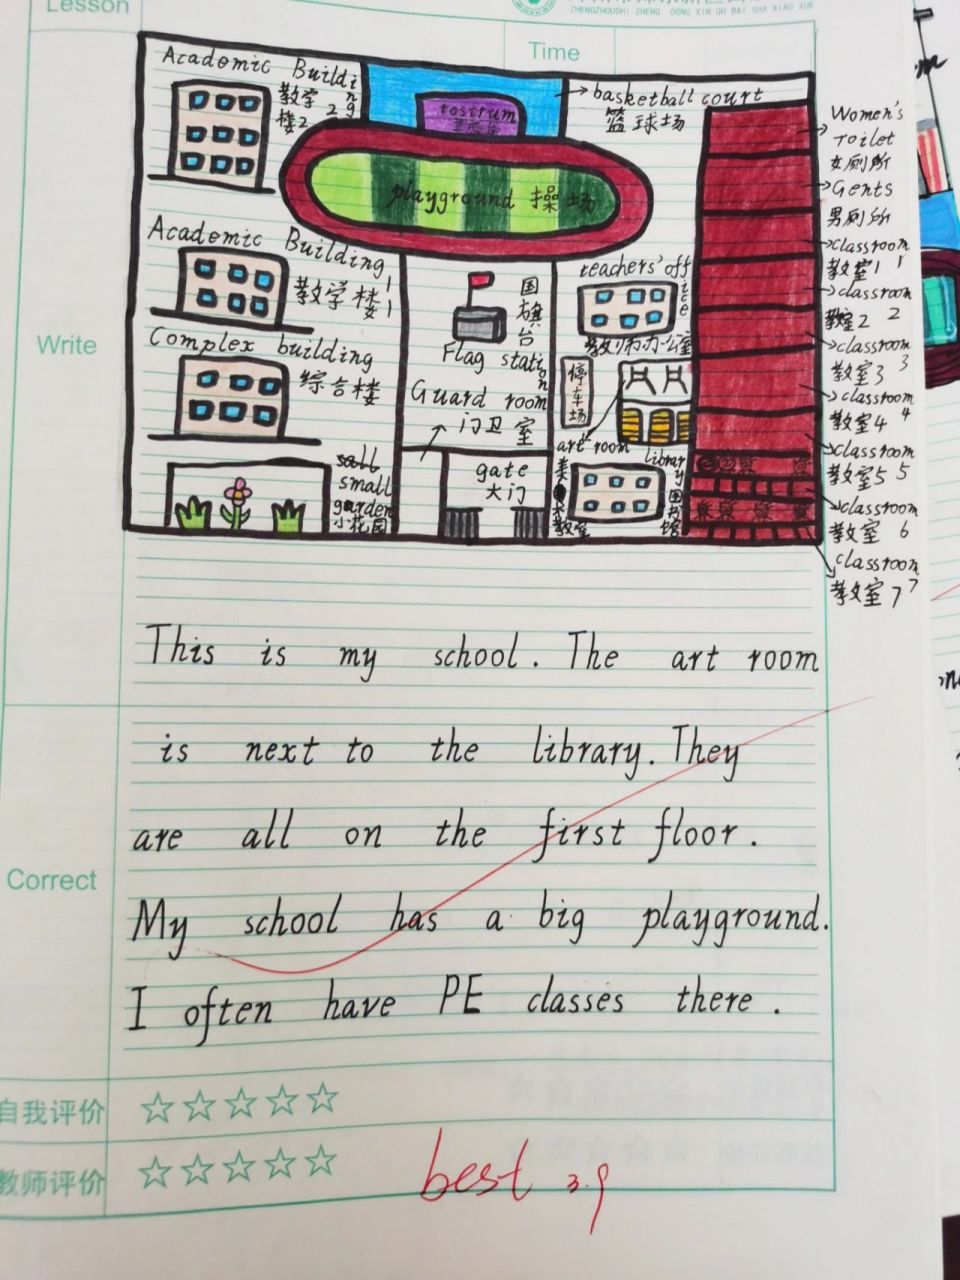 Lesson
ZHENGZHOUSHI ZHENG DONG XIN QU BAI SHA XIAO XUE
Time
Academic Building 2
教学楼2
rostrum
basketball court
篮球场
playground 操场
Women's
Toilet
女厕所
Gents
男厕所
classroom 1
教室1
classroom 2
教室2
classroom 3
教室3
classroom 4
教室4
classroom 5
教室5
classroom 6
教室6
classroom 7
教室7
Academic Building 1
教学楼1
国旗台
Flag station
teachers' office
教师办公室
Write
Complex building
综合楼
Guard room
门卫室
停车场
art room
library
图书馆
gate
大门
small
garden
小花园
This is my school. The art room
is next to the library. They
are all on the first floor.
Correct
My school has a big playground.
I often have PE classes there.
自我评价 ☆☆☆☆☆
教师评价 ☆☆☆☆☆
best 3.9